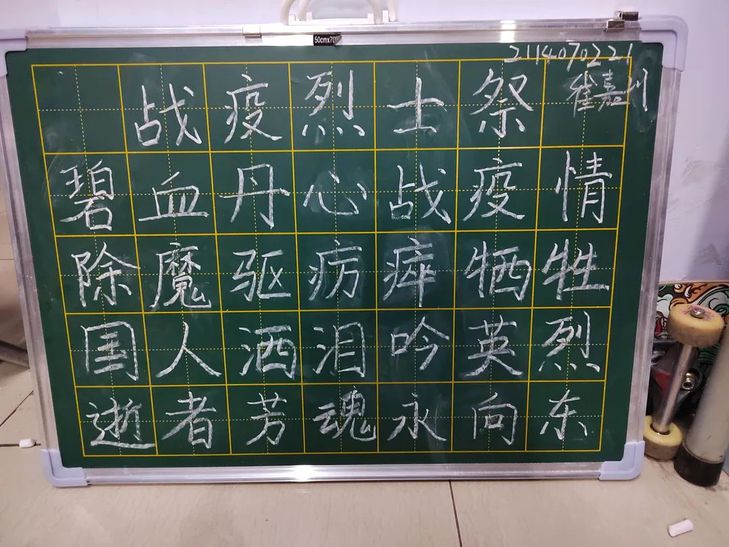 50cm×70
2114070221
崔嘉川
战疫烈士祭
碧血丹心战疫情
除魔驱疠瘁牺牲
国人洒泪吟英烈
逝者芳魂永向东